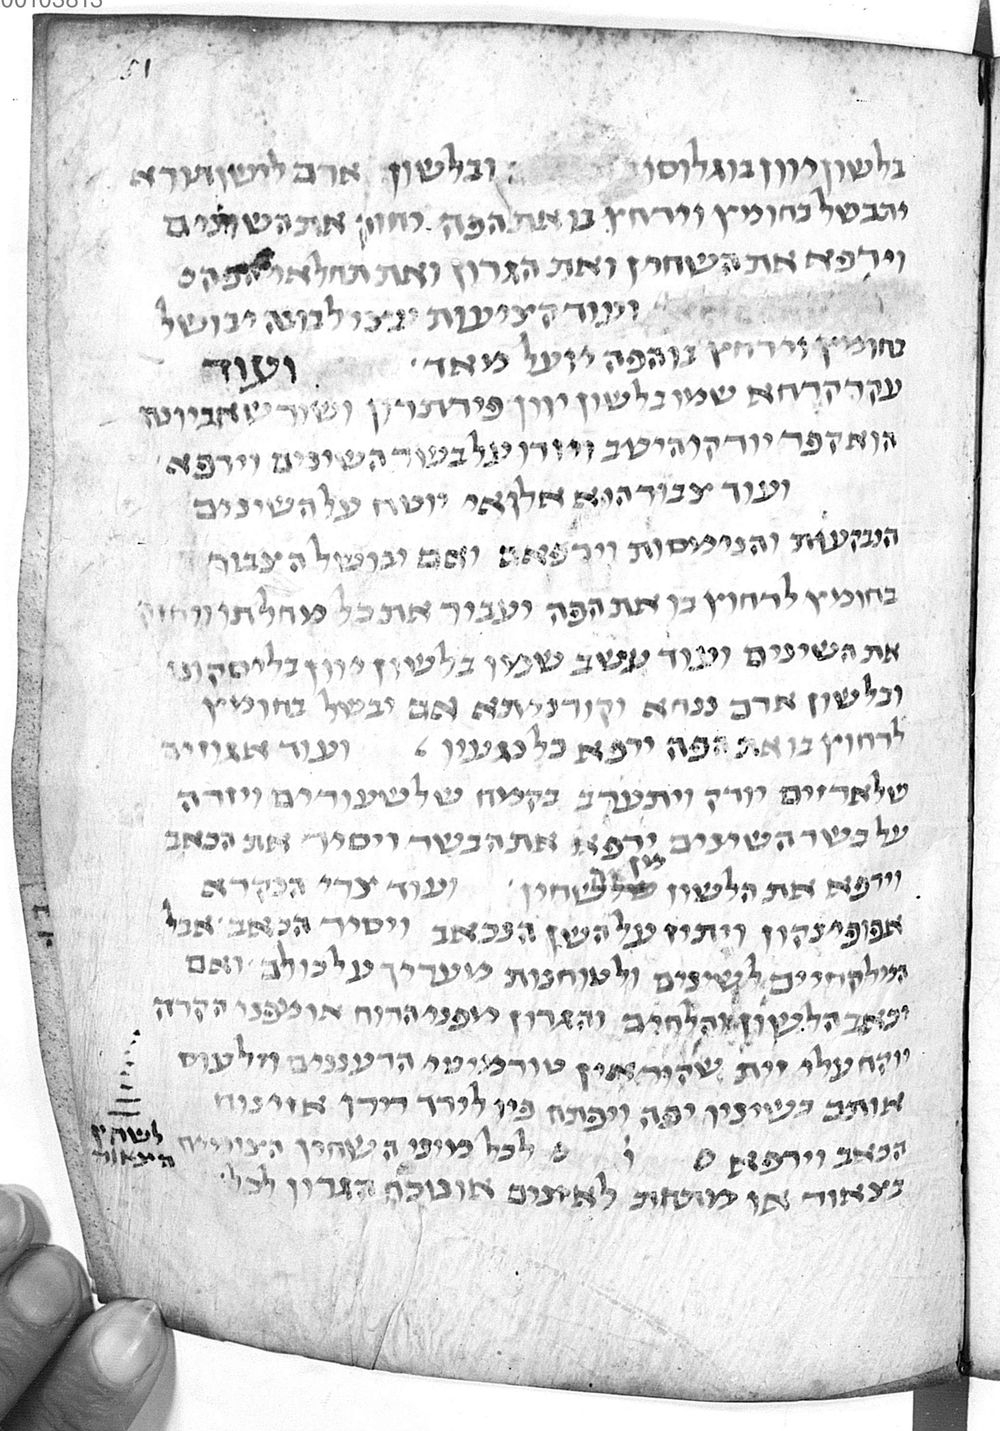 00103813
51
בלשון יוון בוגלוסון ובלשון ארם לישן תורא
יתבשל בחומץ וירחץ בו את הפה יחזק את השינים
וירפא את השחין ואת הגרון ואת תחלואי הפה
ועוד קציעות לבונה יבושל
בחומץ וירחץ בו הפה יועל מאד ועוד
עקר קרחא שמו בלשון יוון פירתרון ושורש אביונה
הוא קפר יודקו היטב ויזרו על בשר השינים וירפא
ועוד צבור הוא אלואי יוטח על השינים
הנבקעות והנימסות וירפאם ואם יבושל הצבור
בחומץ לרחוץ בו את הפה יעביר את כל מחלתו ויחזק
את השינים ועוד עשב שמו בלשון יוון בליסקונו
ובלשון ארם ננחא וקורניתא אם יבשל בחומץ
לרחוץ בו את הפה ירפא כל נגעיו ועוד אגוזים
של ארזים יודק ויתערב בקמח של שעורים ויזרה
על בשר השינים ירפא את הבשר ויסיר את הכאב
וירפא את הלשון מן שחין ועוד צרי הנקרא
אפופינקון ויתיז על השן הנכאב ויסיר הכאב אבל
המלקחיים לשינים ולטוחנות מועדיך על כולם ואם
יכאב הלשון והלחים והגרון מפני הרוח או מפני הקרה
יוקח עלי זית שקוראין טורמיטי הרעננים תלעוס
אותם בשיניך יפה ויפתח פיו לירד רירן אזי ינוח
הכאב וירפא לכל מיני השחין היוצאים
בצואר או מתחת לאזנים או נוכח הגרון לכל
לשחין
היצאור